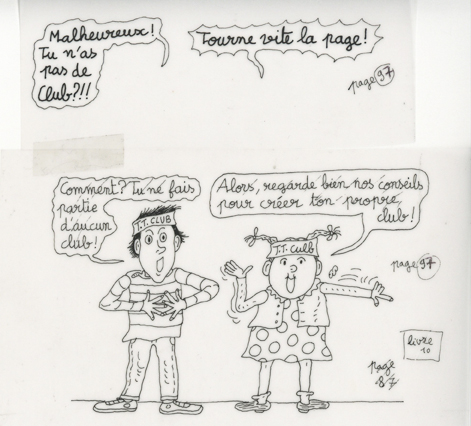 Malheureux!
Tu n'as
pas de
Club?!!
Tourne vite la page!
page 97
Comment? Tu ne fais
partie
d'aucun
club!
Alors, regarde bien nos conseils
pour créer ton propre
club!
T.T. CLUB
T.T. Culb
page 97
livre
10
page
87